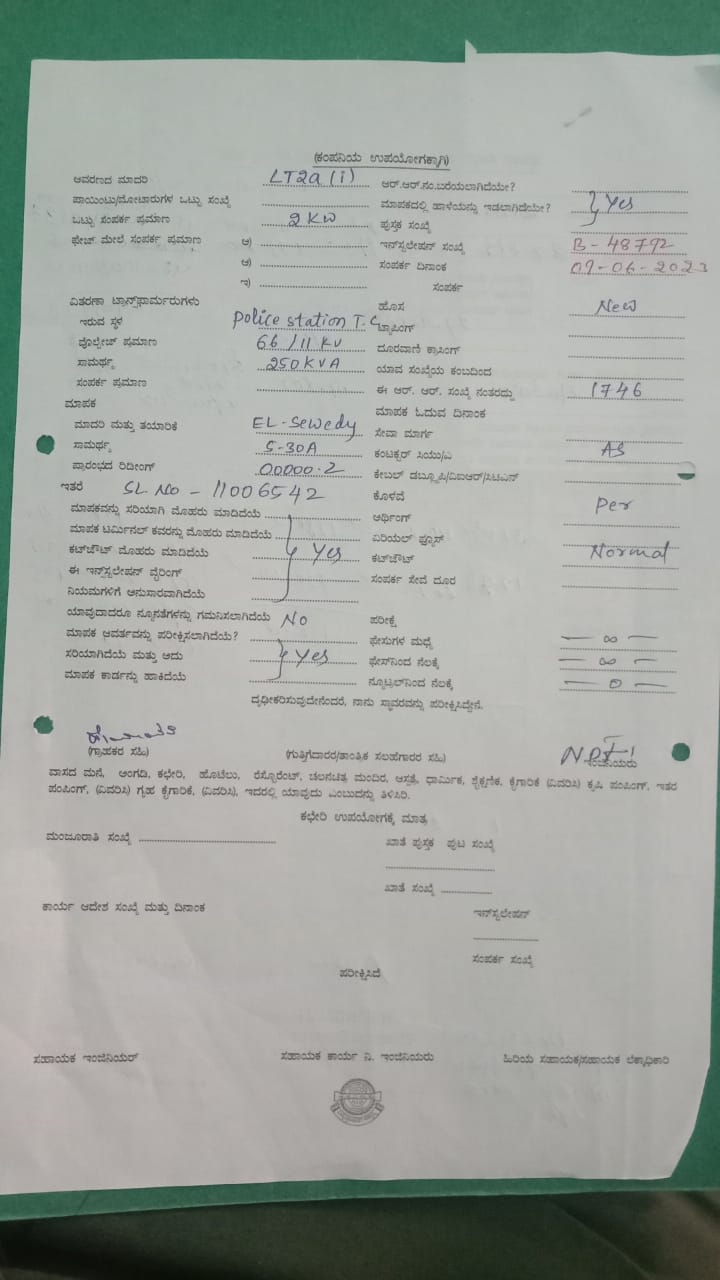 (ಕಂಪನಿಯ ಉಪಯೋಗಕ್ಕಾಗಿ)
ಆವರಣದ ಮಾದರಿ LT2a (i) ಆರ್.ಆರ್.ನಂ.ಬರೆಯಲಾಗಿದೆಯೇ?
ಪಾಯಿಂಟು/ಮೋಟಾರುಗಳ ಒಟ್ಟು ಸಂಖ್ಯೆ ಮಾಪಕದಲ್ಲಿ ಹಾಳೆಯನ್ನು ಇಡಲಾಗಿದೆಯೇ? } Yes
ಒಟ್ಟು ಸಂಪರ್ಕ ಪ್ರಮಾಣ 2 KW ಪುಸ್ತಕ ಸಂಖ್ಯೆ
ಫೇಜ್ ಮೇಲೆ ಸಂಪರ್ಕ ಪ್ರಮಾಣ ಅ) ಇನ್‌ಸ್ಟಲೇಷನ್ ಸಂಖ್ಯೆ B-48792
ಆ) ಸಂಪರ್ಕ ದಿನಾಂಕ 09-06-2023
ಇ) ಸಂಪರ್ಕ
ವಿತರಣಾ ಟ್ರಾನ್ಸ್‌ಫಾರ್ಮರುಗಳು ಹೊಸ New
ಇರುವ ಸ್ಥಳ Police station T.C ಟ್ಯಾಪಿಂಗ್
ವೊಲ್ಟೇಜ್ ಪ್ರಮಾಣ 66/11 KV ದೂರವಾಣಿ ಕ್ರಾಸಿಂಗ್
ಸಾಮರ್ಥ್ಯ 250 KVA ಯಾವ ಸಂಖ್ಯೆಯ ಕಂಬದಿಂದ
ಸಂಪರ್ಕ ಪ್ರಮಾಣ ಈ ಆರ್. ಆರ್. ಸಂಖ್ಯೆ ನಂತರದ್ದು 1746
ಮಾಪಕ ಮಾಪಕ ಓದುವ ದಿನಾಂಕ
ಮಾದರಿ ಮತ್ತು ತಯಾರಿಕೆ EL-Sewedy ಸೇವಾ ಮಾರ್ಗ
ಸಾಮರ್ಥ್ಯ 5-30A ಕಂಟಕ್ಟರ್ ಸಿಯು/ಎ AS
ಪ್ರಾರಂಭದ ರಿಡೀಂಗ್ 00000.2 ಕೇಬಲ್ ಡಬ್ಲೂಪಿ/ವಿಐಆರ್/ಸಿಟಿಎಸ್
ಇತರೆ SL.No - 11006542 ಕೊಳವೆ Per
ಮಾಪಕವನ್ನು ಸರಿಯಾಗಿ ಮೊಹರು ಮಾಡಿದೆಯೆ ಅರ್ಥಿಂಗ್
ಮಾಪಕ ಟರ್ಮಿನಲ್ ಕವರನ್ನು ಮೊಹರು ಮಾಡಿದೆಯೆ ಏರಿಯಲ್ ಫ್ಯೂಸ್
ಕಟ್‌ಔಟ್ ಮೊಹರು ಮಾಡಿದೆಯೆ } Yes ಕಟ್‌ಔಟ್ Normal
ಈ ಇನ್‌ಸ್ಟಲೇಷನ್ ವೈರಿಂಗ್ ಸಂಪರ್ಕ ಸೇವೆ ದೂರ
ನಿಯಮಗಳಿಗೆ ಅನುಸಾರವಾಗಿದೆಯೆ
ಯಾವುದಾದರೂ ನ್ಯೂನತೆಗಳನ್ನು ಗಮನಿಸಲಾಗಿದೆಯೆ No ಪರೀಕ್ಷೆ
ಮಾಪಕ ಆವರ್ತವನ್ನು ಪರೀಕ್ಷಿಸಲಾಗಿದೆಯೆ? ಫೇಸುಗಳ ಮಧ್ಯೆ — ∞ —
ಸರಿಯಾಗಿದೆಯೆ ಮತ್ತು ಅದು } Yes ಫೇಸ್‌ನಿಂದ ನೆಲಕ್ಕೆ — ∞ —
ಮಾಪಕ ಕಾರ್ಡನ್ನು ಹಾಕಿದೆಯೆ ನ್ಯೂಟ್ರಲ್‌ನಿಂದ ನೆಲಕ್ಕೆ — 0 —
ದೃಢೀಕರಿಸುವುದೇನೆಂದರೆ, ನಾನು ಸ್ಥಾವರವನ್ನು ಪರೀಕ್ಷಿಸಿದ್ದೇನೆ.
(ಗ್ರಾಹಕರ ಸಹಿ) (ಗುತ್ತಿಗೆದಾರರ/ತಾಂತ್ರಿಕ ಸಲಹೆಗಾರರ ಸಹಿ) ಇಂಜಿನಿಯರು
ವಾಸದ ಮನೆ, ಅಂಗಡಿ, ಕಛೇರಿ, ಹೊಟೆಲು, ರೆಸ್ಟೊರೆಂಟ್, ಚಲನಚಿತ್ರ ಮಂದಿರ, ಆಸ್ಪತ್ರೆ, ಧಾರ್ಮಿಕ, ಶೈಕ್ಷಣಿಕ, ಕೈಗಾರಿಕೆ (ವಿವರಿಸಿ) ಕೃಷಿ ಪಂಪಿಂಗ್, ಇತರ
ಪಂಪಿಂಗ್, (ವಿವರಿಸಿ) ಗೃಹ ಕೈಗಾರಿಕೆ, (ವಿವರಿಸಿ), ಇದರಲ್ಲಿ ಯಾವುದು ಎಂಬುದನ್ನು ತಿಳಿಸಿರಿ.
ಕಛೇರಿ ಉಪಯೋಗಕ್ಕೆ ಮಾತ್ರ
ಮಂಜೂರಾತಿ ಸಂಖ್ಯೆ ಖಾತೆ ಪುಸ್ತಕ ಪುಟ ಸಂಖ್ಯೆ
ಖಾತೆ ಸಂಖ್ಯೆ
ಕಾರ್ಯ ಆದೇಶ ಸಂಖ್ಯೆ ಮತ್ತು ದಿನಾಂಕ ಇನ್‌ಸ್ಟಲೇಷನ್
ಸಂಪರ್ಕ ಸಂಖ್ಯೆ
ಪರೀಕ್ಷಿಸಿದೆ
ಸಹಾಯಕ ಇಂಜಿನಿಯರ್ ಸಹಾಯಕ ಕಾರ್ಯ ನಿ. ಇಂಜಿನಿಯರು ಹಿರಿಯ ಸಹಾಯಕ/ಸಹಾಯಕ ಲೆಕ್ಕಾಧಿಕಾರಿ